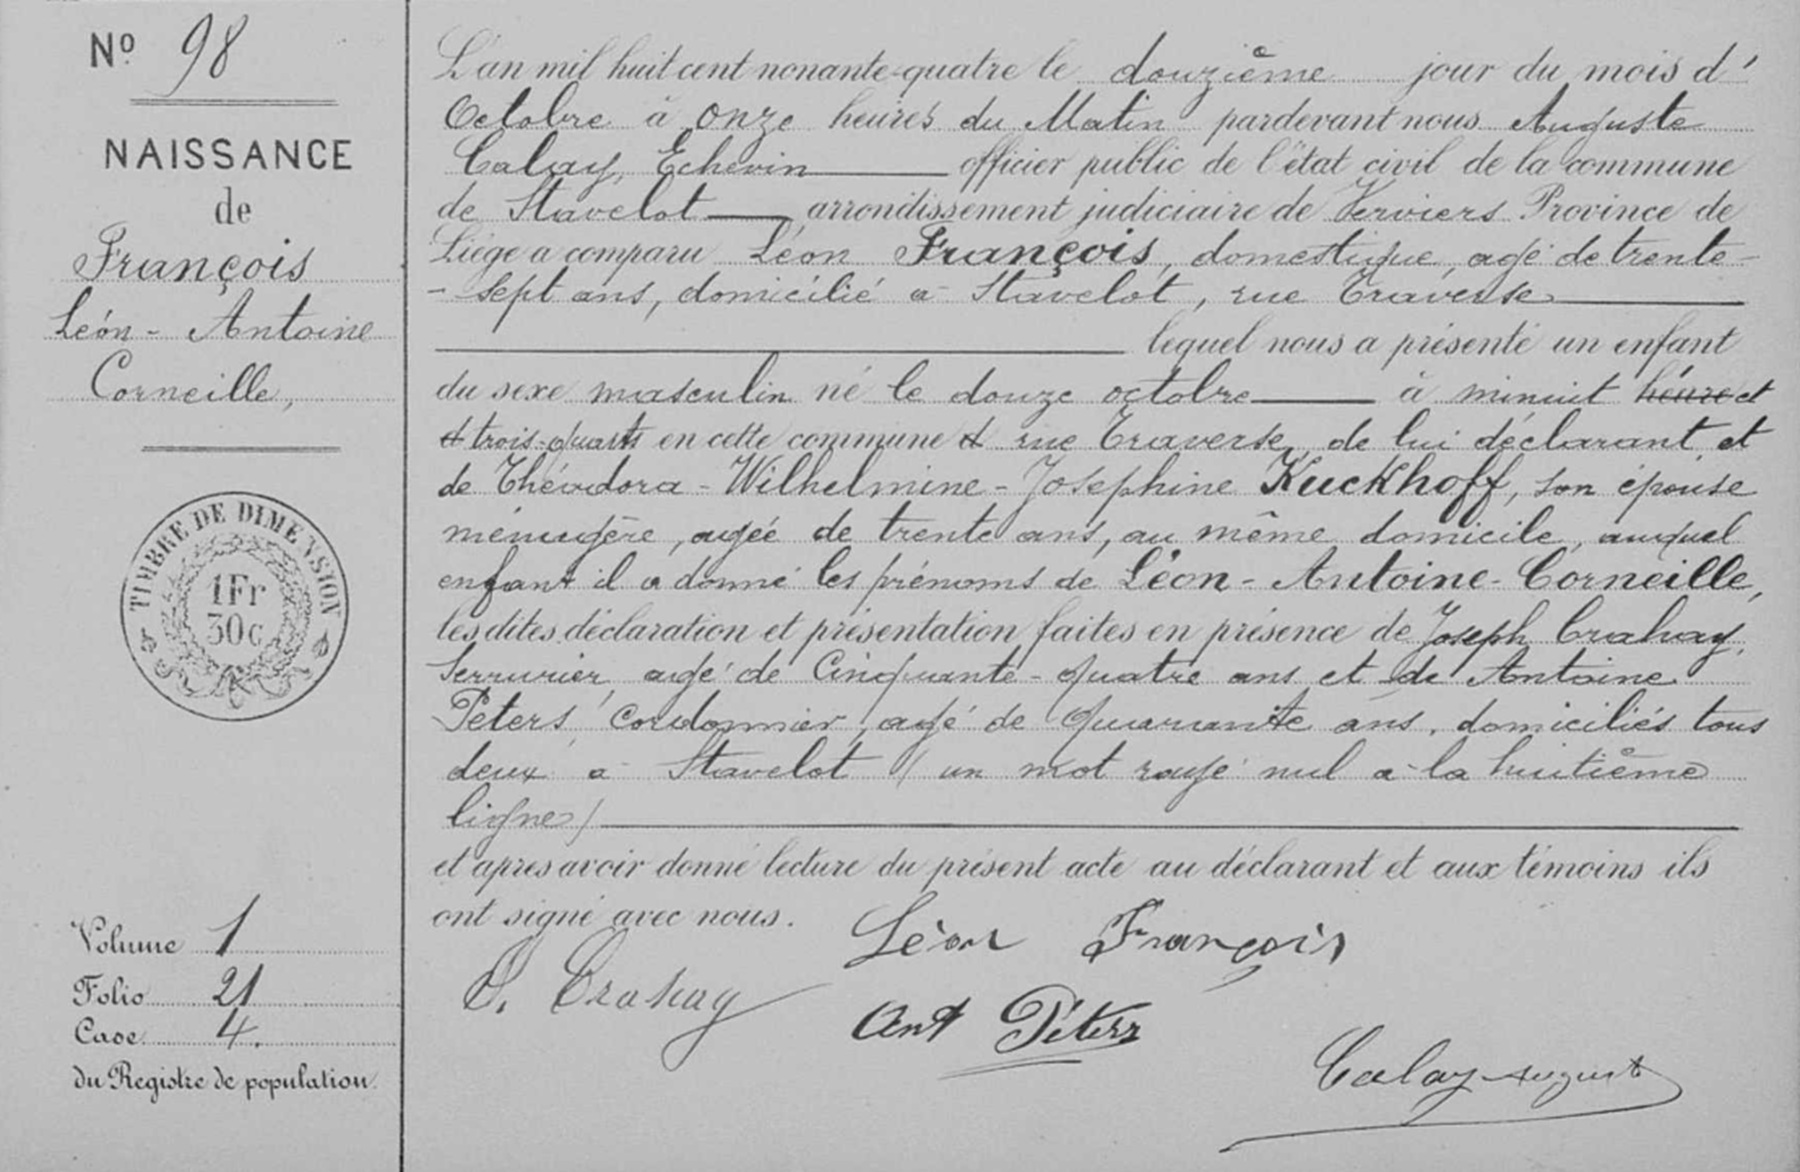 N° 98
NAISSANCE
de
François
Léon - Antoine
Corneille,
TIMBRE DE DIMENSION
1Fr
30c
Volume 1
Folio 21
Case 4.
du Registre de population.
L'an mil huit cent nonante-quatre le douzième jour du mois d'
Octobre à onze heures du Matin pardevant nous Auguste
Calay, Echevin officier public de l'état civil de la commune
de Stavelot arrondissement judiciaire de Verviers Province de
Liége a comparu Léon François, domestique, agé de trente-
- sept ans, domicilié a Stavelot, rue Traverse
lequel nous a présenté un enfant
du sexe masculin né le douze octobre à minuit heure et
et trois-quarts en cette commune et rue Traverse, de lui déclarant et
de Théodora - Wilhelmine - Josephine Kuckhoff, son épouse
ménagère, agée de trente ans, au même domicile, auquel
enfant il a donné les prénoms de Léon - Antoine - Corneille,
les dites déclaration et présentation faites en présence de Joseph Crahay,
Serrurier, agé de Cinquante - quatre ans et de Antoine
Péters, Cordonnier, agé de quarante ans, domiciliés tous
deux a Stavelot (un mot rayé nul a la huitième
ligne)
et apres avoir donné lecture du présent acte au déclarant et aux témoins ils
ont signé avec nous.
Léon François
J. Crahay
Ant Péters
Calay August